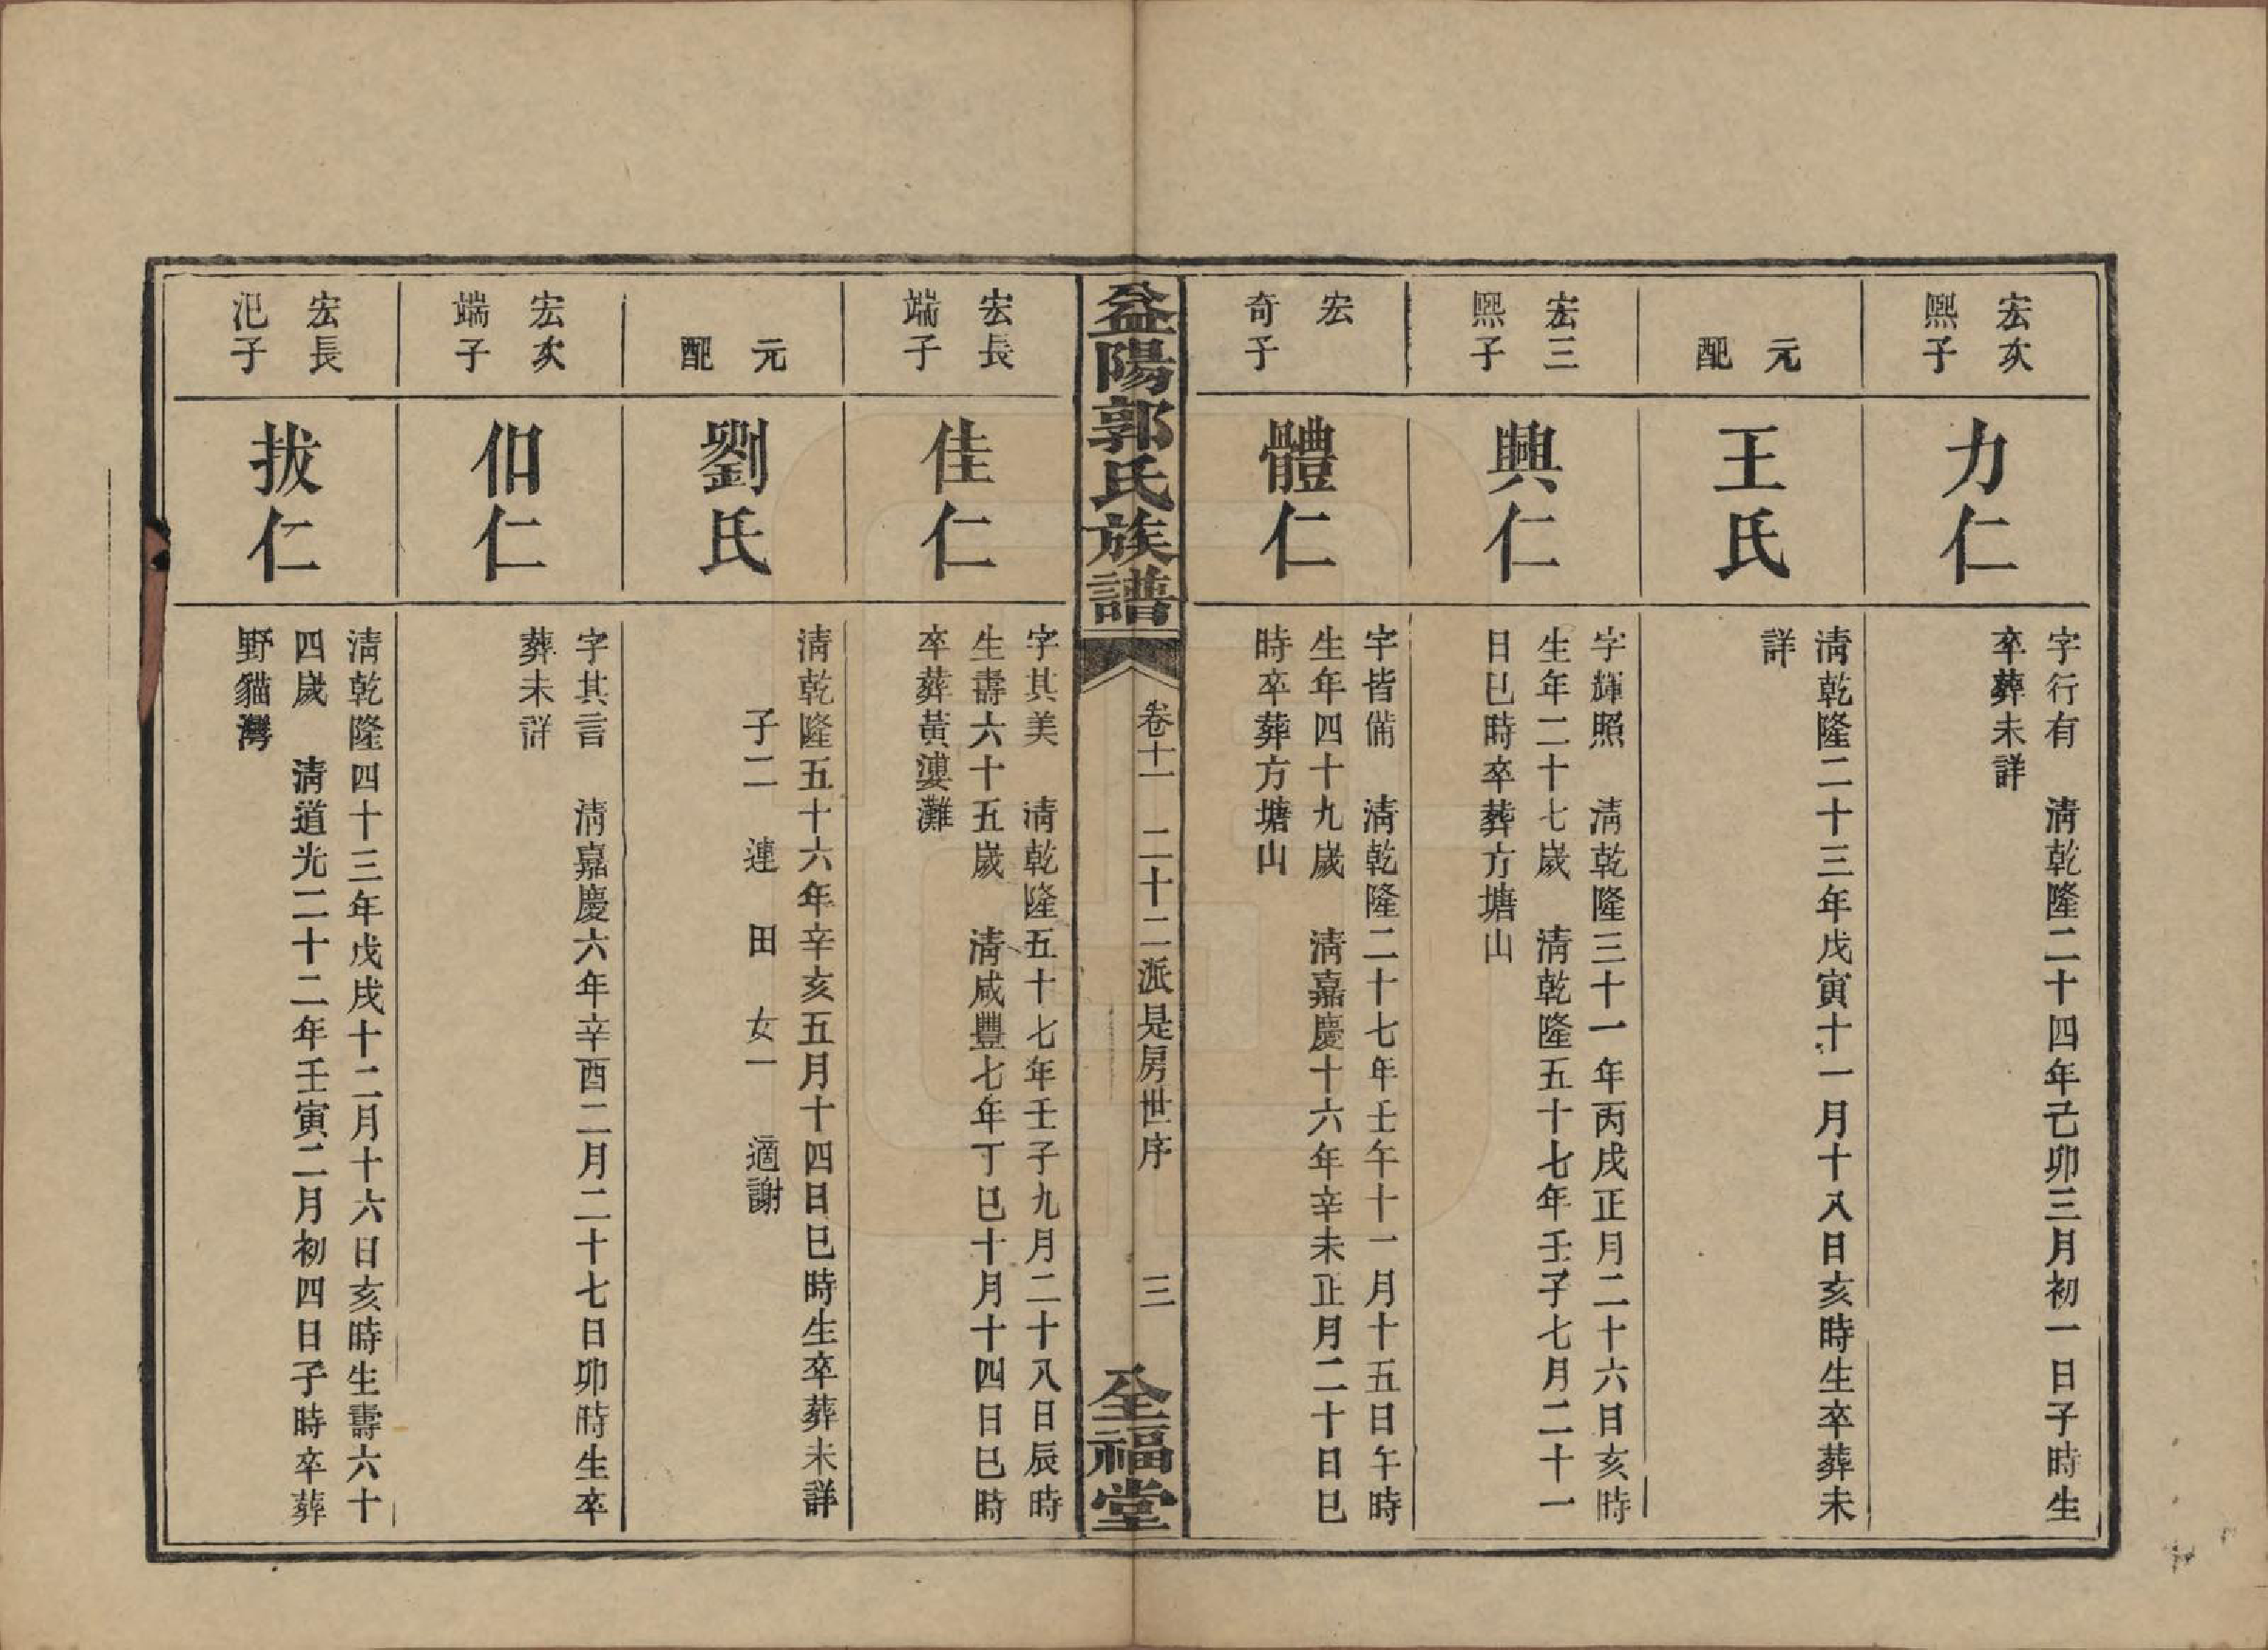 宏次
熙子
力仁
字行有　清乾隆二十四年己卯三月初一日子時生
卒葬未詳
元
配
王氏
清乾隆二十三年戊寅十一月十八日亥時生卒葬未
詳
宏三
熙子
興仁
字輝照　清乾隆三十一年丙戌正月二十六日亥時
生年二十七歲　清乾隆五十七年壬子七月二十一
日巳時卒葬方塘山
宏
奇子
體仁
字皆備　清乾隆二十七年壬午十一月十五日午時
生年四十九歲　清嘉慶十六年辛未正月二十日巳
時卒葬方塘山
益陽郭氏族譜
卷十一　二十二派是房世序　三
全福堂
宏長
端子
佳仁
字其美　清乾隆五十七年壬子九月二十八日辰時
生壽六十五歲　清咸豐七年丁巳十月十四日巳時
卒葬黃漊灘
元
配
劉氏
清乾隆五十六年辛亥五月十四日巳時生卒葬未詳
子二　連　田　女一　適謝
宏次
端子
伯仁
字其言　清嘉慶六年辛酉二月二十七日卯時生卒
葬未詳
宏長
汜子
拔仁
清乾隆四十三年戊戌十二月十六日亥時生壽六十
四歲　清道光二十二年壬寅二月初四日子時卒葬
野貓灣